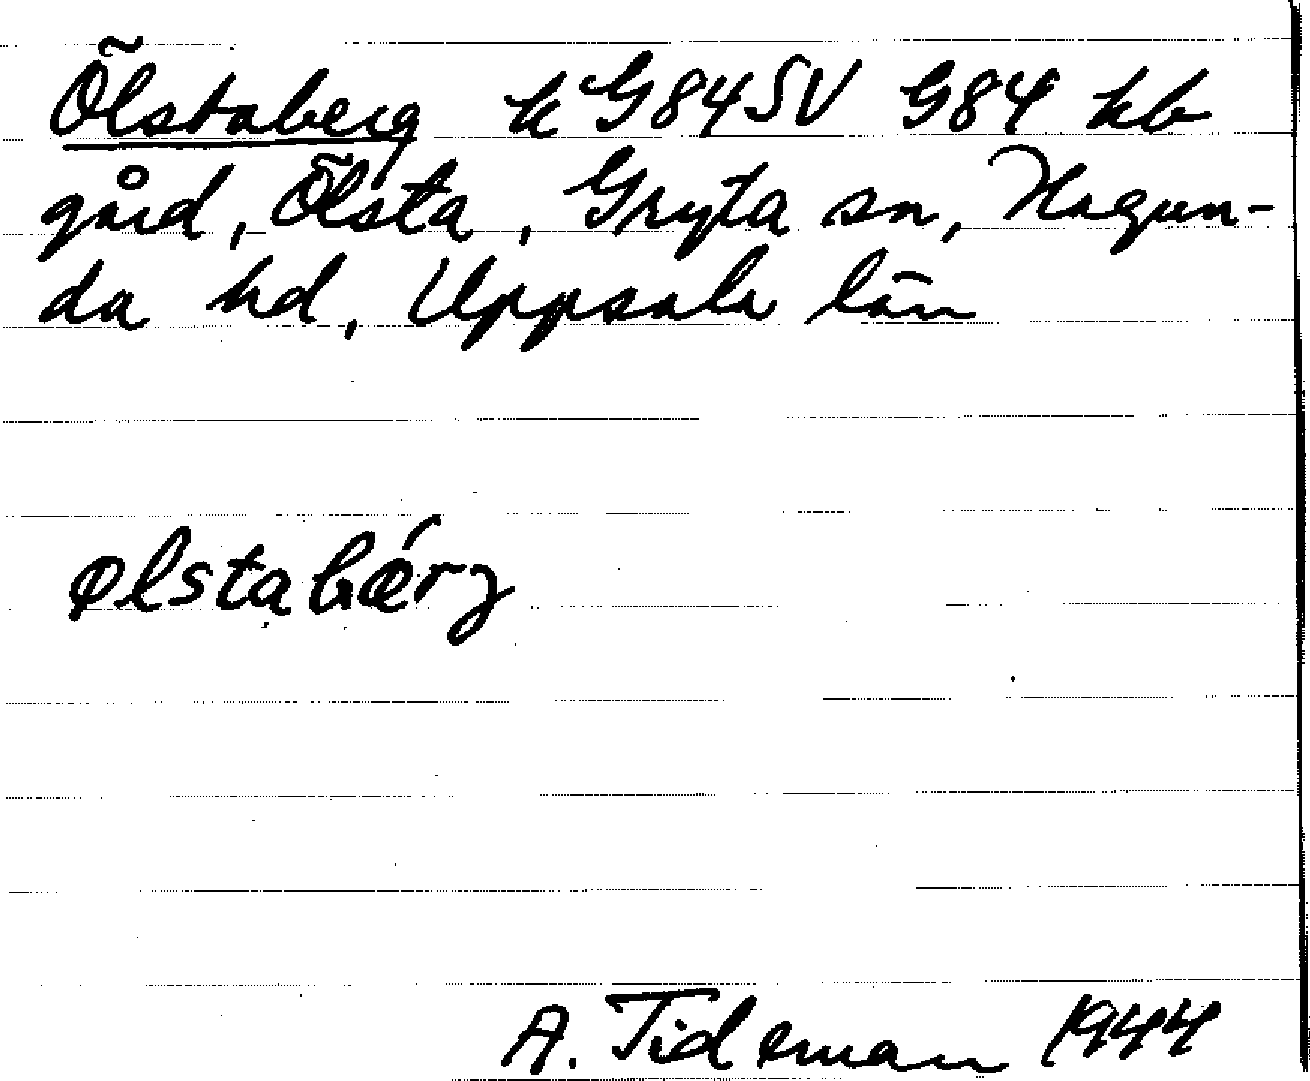 Ölstaberg k G84SV G84 kb
gård, Ölsta, Gryta sn, Hagun-
da hd, Uppsala län
ølstabǽrg
A. Tideman 1944